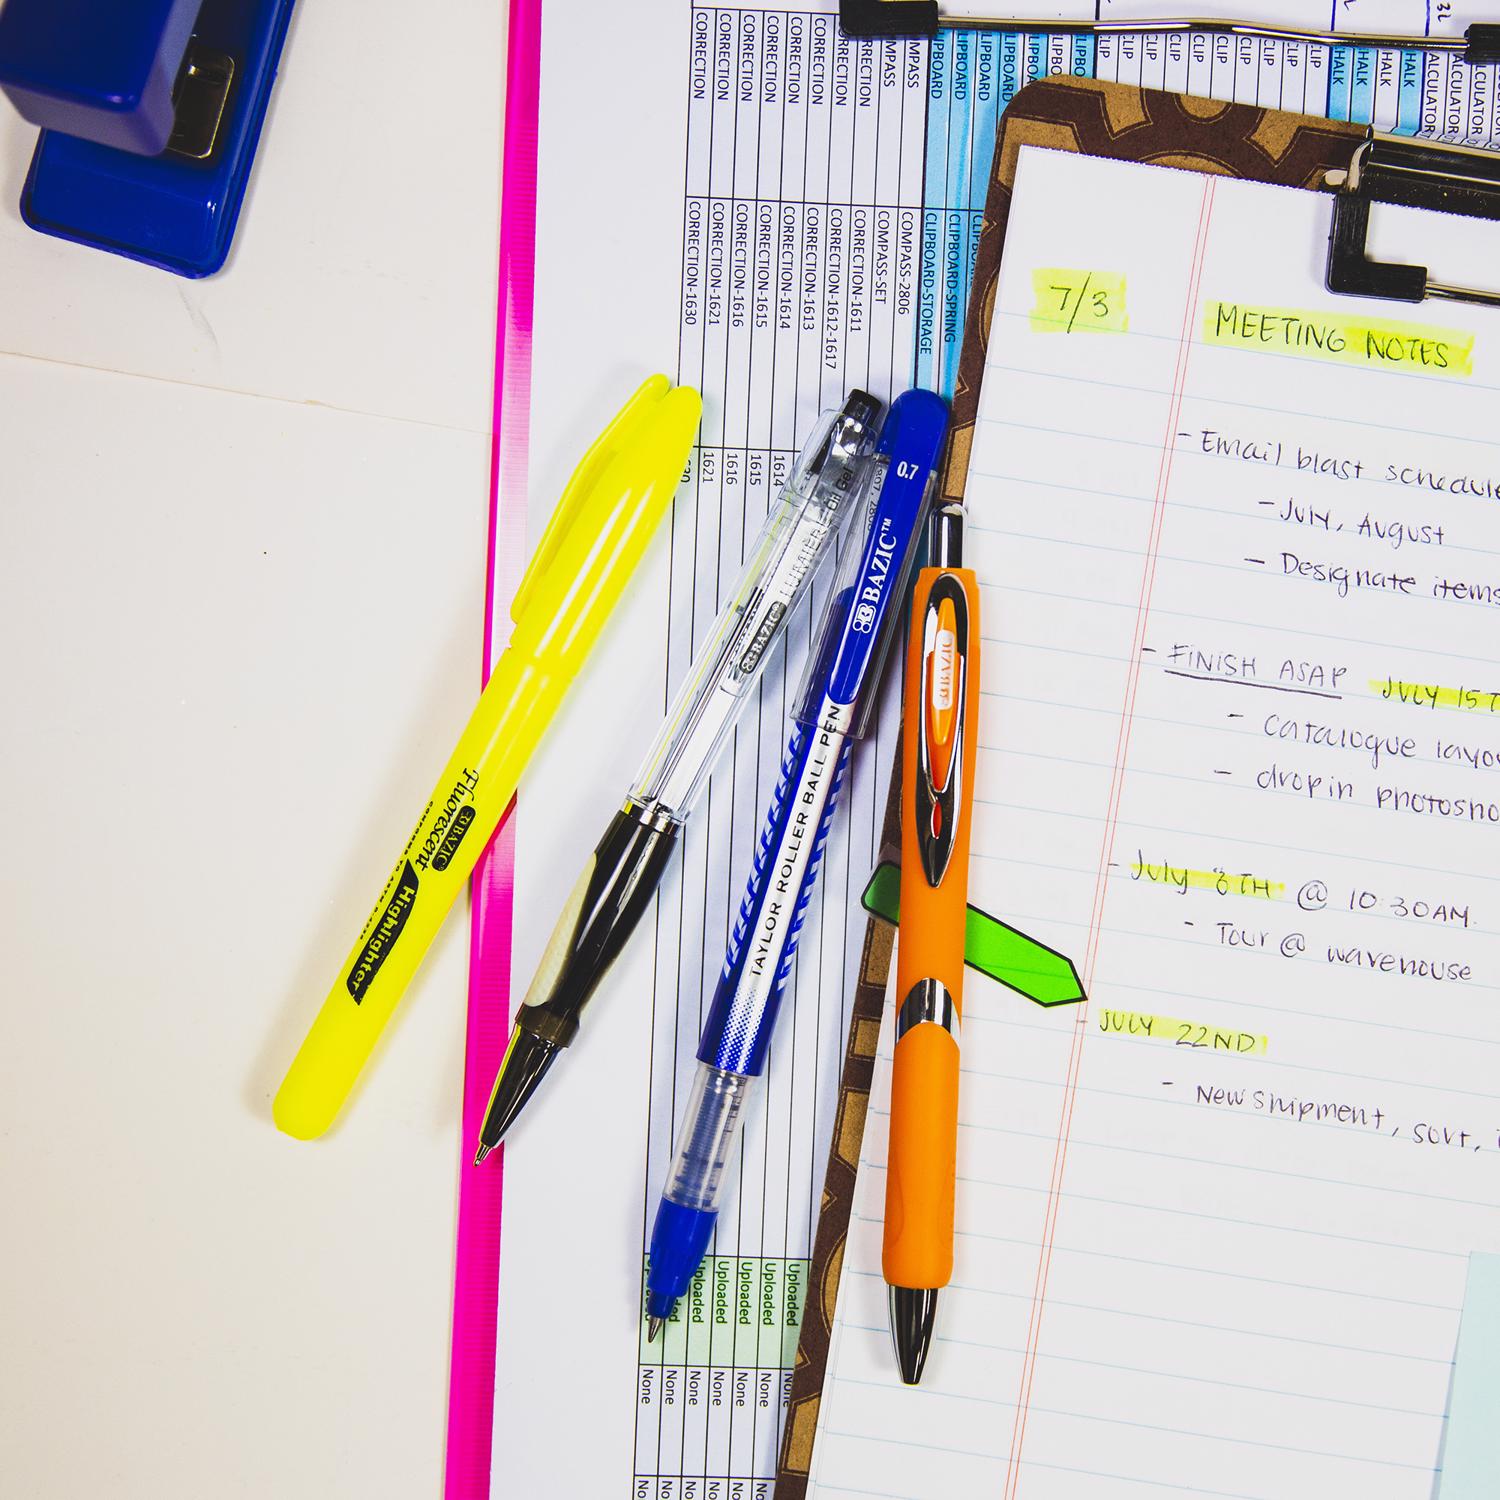 CORRECTION
CORRECTION
CORRECTION
CORRECTION
CORRECTION
CORRECTION
CORRECTION
CLIPBOARD
CLIPBOARD
CLIPBOARD
CLIP
CLIP
CLIP
CLIP
CLIP
CLIP
CLIP
CLIP
CORRECTION-1630
CORRECTION-1621
CORRECTION-1616
CORRECTION-1615
CORRECTION-1614
CORRECTION-1613
CORRECTION-1612-1617
CORRECTION-1611
COMPASS-SET
COMPASS-2806
CLIPBOARD-STORAGE
CLIPBOARD-SPRING
1621
1616
1615
1614
Uploaded
Uploaded
Uploaded
Uploaded
None
None
None
None
None
None
None
BAZIC
Fluorescent
Highlighter
BAZIC LUMIER Oil Gel
0.7
BAZIC™
TAYLOR ROLLER BALL PEN
7/3
MEETING NOTES
- Email blast schedule
- July, August
- Designate items
- FINISH ASAP JULY 15
- Catalogue
- drop in
- July 8TH @ 10:30AM.
- Tour @ warehouse
- JULY 22ND
- New shipment, sort,